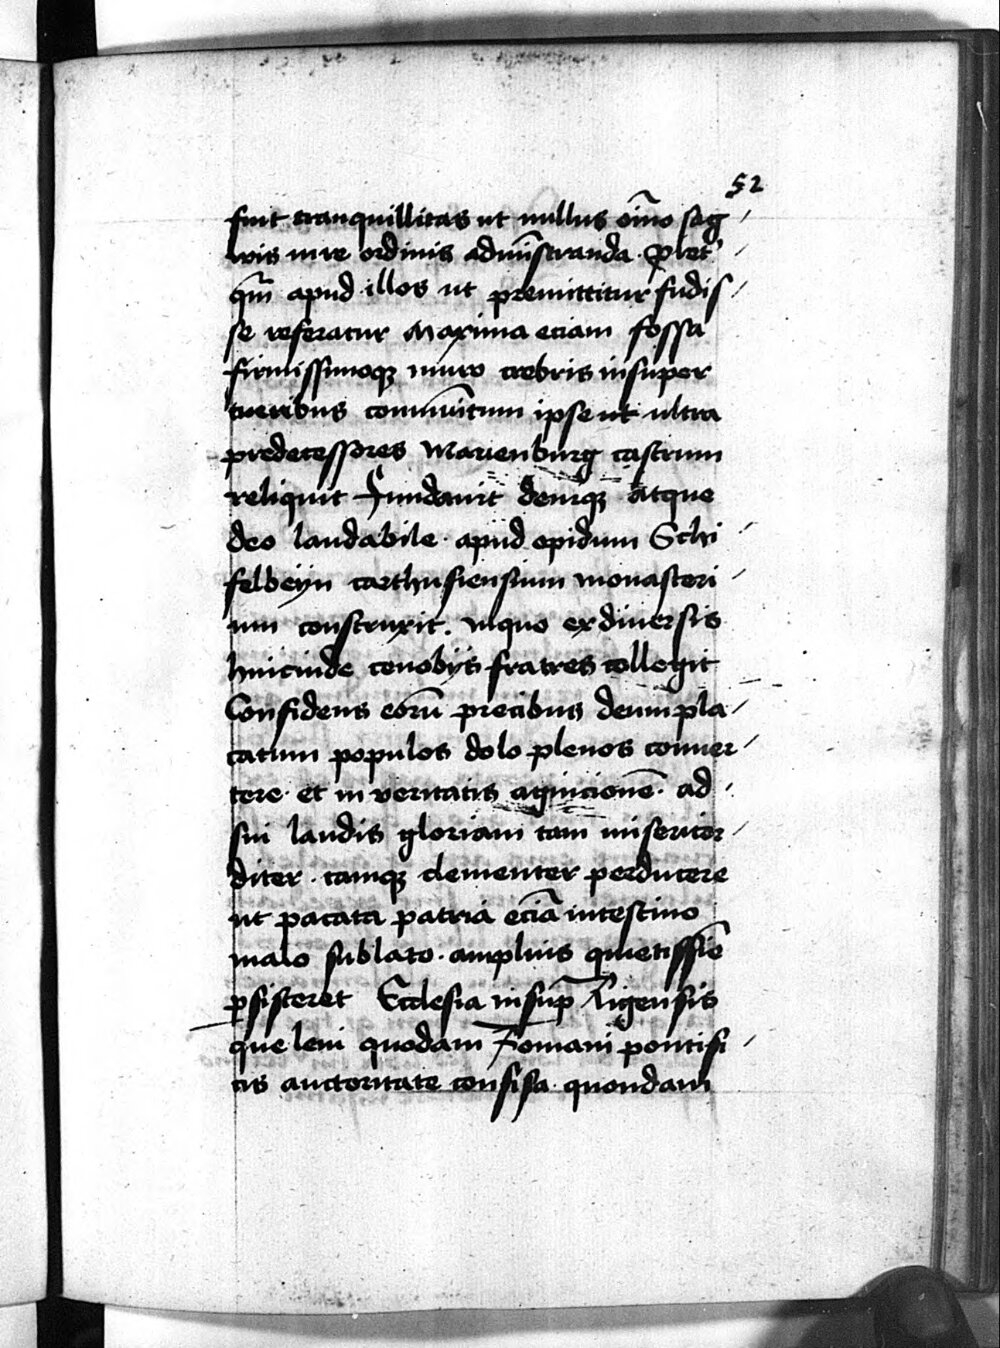 52
fuit tranquillitas ut nullus oīno seg
wis iure ordinis admīstranda. Plet
qm̄ apud illos ut premittitur fudis
se referatur Maxima eciam fossa
firmissimoqȝ muro crebris insuper
turribus communitum ipse ut ultra
predecessores Marienburg castrum
reliquit Fundauit deniqȝ atque
deo laudabile apud opidum Schi
felbeyn carthusiensium monasteri
um construxit. inquo ex diuersis
huicinde cenobijs fratres collegit
Confidens eorū precibus deum pla
catum populos dolo plenos conuer
tere. et in veritatis agnicionē. ad
sui laudis gloriam tam misericor
diter. tamqȝ clementer perducere
ut pacata patria eciā intestino
malo sublato. amplius quietissīe
psisteret Ecclesia insup Rigensis
que leui quodam Romani pontifi
cis auctoritate consisa quondam